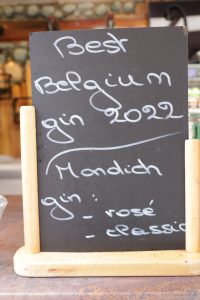 Best
Belgium
gin 2022
Mondich
gin :
- rosé
- classic